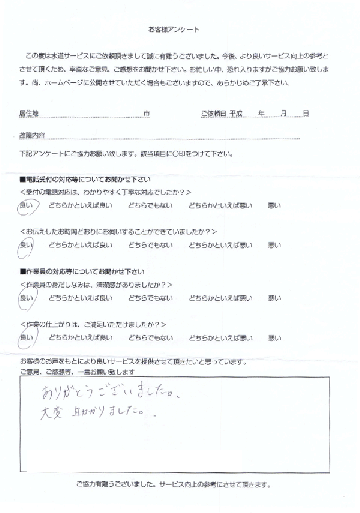 お客様アンケート
この度は水道サービスにご依頼頂きまして誠に有難うございました。今後、より良いサービス向上の参考と
させて頂くため、率直なご意見、ご感想をお聞かせ下さい。お忙しい中、恐れ入りますがご協力お願い致しま
す。尚、ホームページに公開させていただく場合もございますので、あらかじめご了承下さい。
居住地 市 ご依頼日 平成 年 月 日
修理内容
下記アンケートにご協力お願い致します。該当項目に○印をつけて下さい。
■電話受付の対応等についてお聞かせ下さい
<受付の電話対応は、わかりやすく丁寧な対応でしたか?>
良い どちらかといえば良い どちらでもない どちらかといえば悪い 悪い
<お伝えしたお時間どおりにお伺いすることができていましたか?>
良い どちらかといえば良い どちらでもない どちらかといえば悪い 悪い
■作業員の対応等についてお聞かせ下さい
<作業員の身だしなみは、清潔感がありましたか?>
良い どちらかといえば良い どちらでもない どちらかといえば悪い 悪い
<作業の仕上がりは、ご満足いただけましたか?>
良い どちらかといえば良い どちらでもない どちらかといえば悪い 悪い
お客様のお声をもとにより良いサービスを提供させて頂きたいと思っています。
ご意見、ご感想等、一言お願い致します
ありがとうございました。
大変 助かりました。
ご協力有難うございました。サービス向上の参考にさせて頂きます。